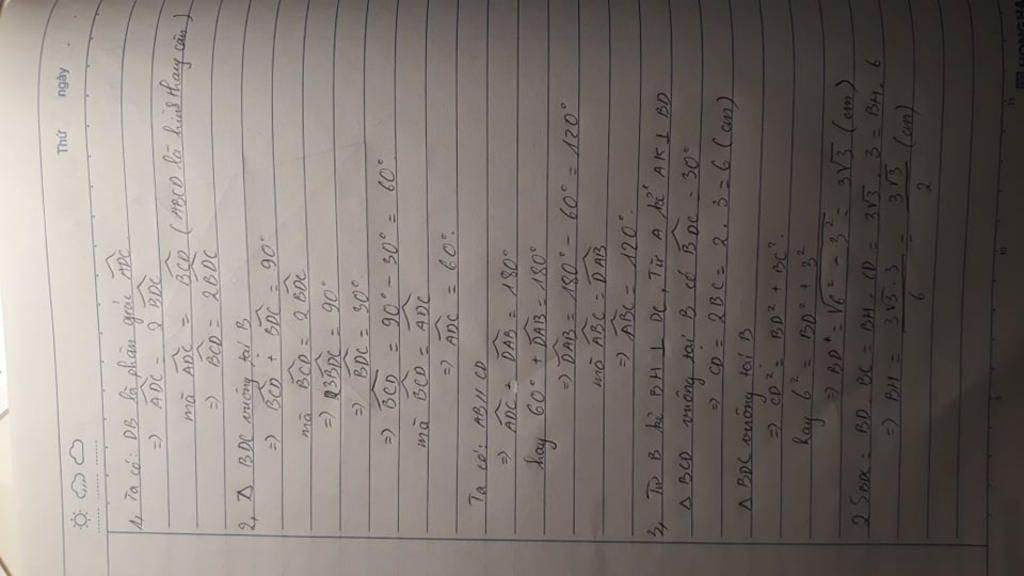 Thứ ngày
1, Ta có: DB là phân giác ADC
=> ADC = 2 BDC
mà ADC = BCD (ABCD là hình thang cân)
=> BCD = 2BDC
2, Δ BDC vuông tại B
=> BCD + BDC = 90°
mà BCD = 2 BDC
=> 3BDC = 90°
=> BDC = 30°
=> BCD = 90° - 30° = 60°
mà BCD = ADC
=> ADC = 60°.
Ta có: AB // CD
=> ADC + DAB = 180°
hay 60° + DAB = 180°
=> DAB = 180° - 60° = 120°
mà ABC = DAB
=> ABC = 120°.
3, Từ B kẻ BH ⊥ DC, Từ A kẻ AK ⊥ BD
Δ BCD vuông tại B có BDC = 30°
=> CD = 2BC = 2. 3 = 6 (cm)
Δ BDC vuông tại B
=> CD² = BD² + BC².
hay 6² = BD² + 3²
=> BD = √6² - 3² = 3√3 (cm)
2 S BDC = BD. BC = BH. CD = 3√3. 3 = BH. 6
=> BH = 3√3. 3 / 6 = 3√3 / 2 (cm)